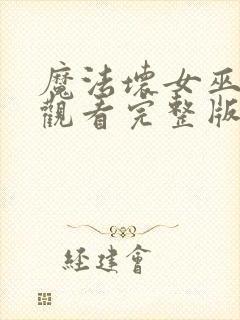 魔法壞女巫
觀看完整版
經建會